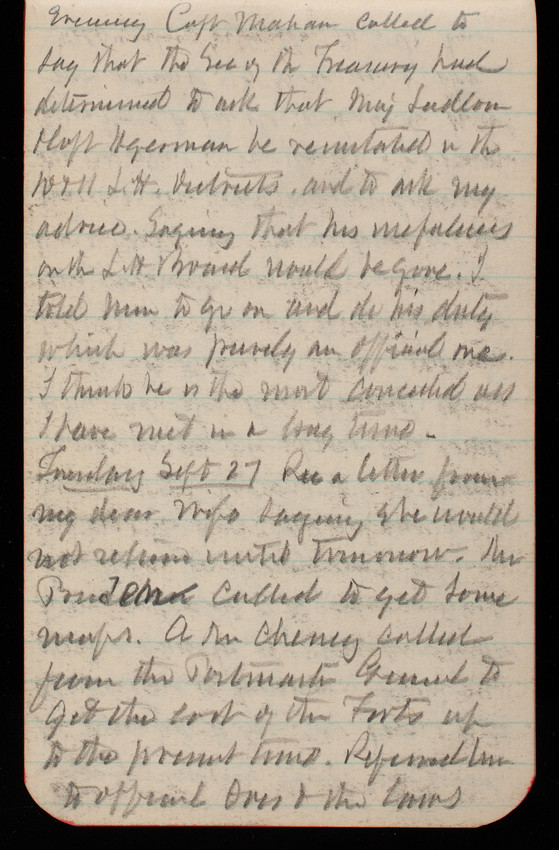 Evening Capt Mahan called to
say that the Sec of the Treasury had
determined to ask that Maj Ludlow
& Capt be reinstated in the
10 & 11 L.H. Districts. and to ask my
advice. Saying that his usefulness
on the L.H. Board would be gone. I
told him to go on and do his duty
which was purely an official one.
I think he is the most conceited ass
I have met in a long time -
Tuesday Sept 27 Rec a letter from
my dear wife saying she would
not return until tomorrow. Mr
called to get some
maps. A Mr Cheney called
from the Postmaster General to
get the cost of the Forts up
to the present time. Referred him
to official Docs & the laws